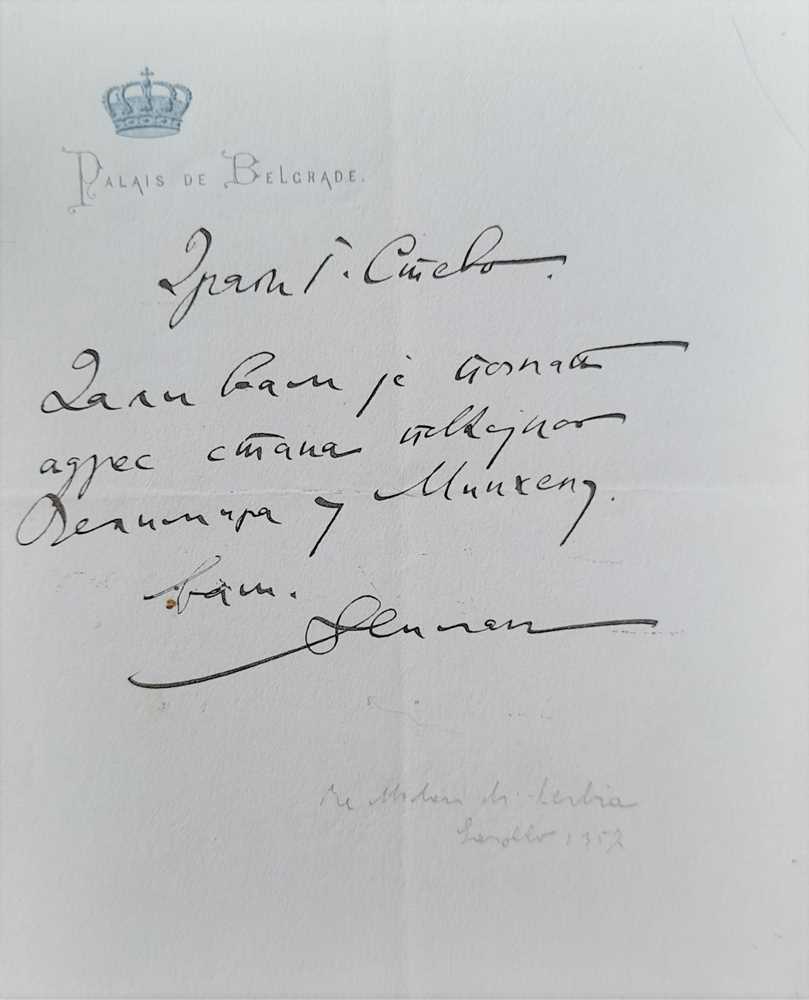 PALAIS DE BELGRADE.
Драги Г. Стево.
Дали вам је познат
адрес стана покојног
Велимира у Минхену.
Ваш.
Милан
Re Milan di Serbia
1957